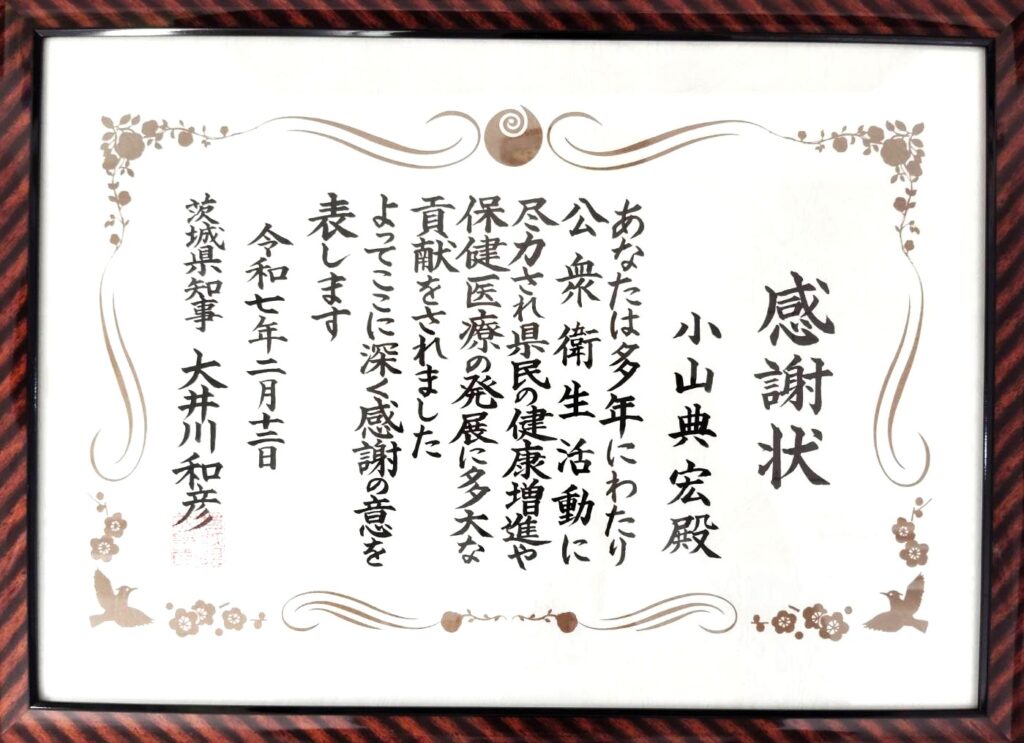 感謝状
小山典宏殿
あなたは多年にわたり
公衆衛生活動に
尽力され県民の健康増進や
保健医療の発展に多大な
貢献をされました
よってここに深く感謝の意を
表します
令和七年二月十二日
茨城県知事 大井川和彦